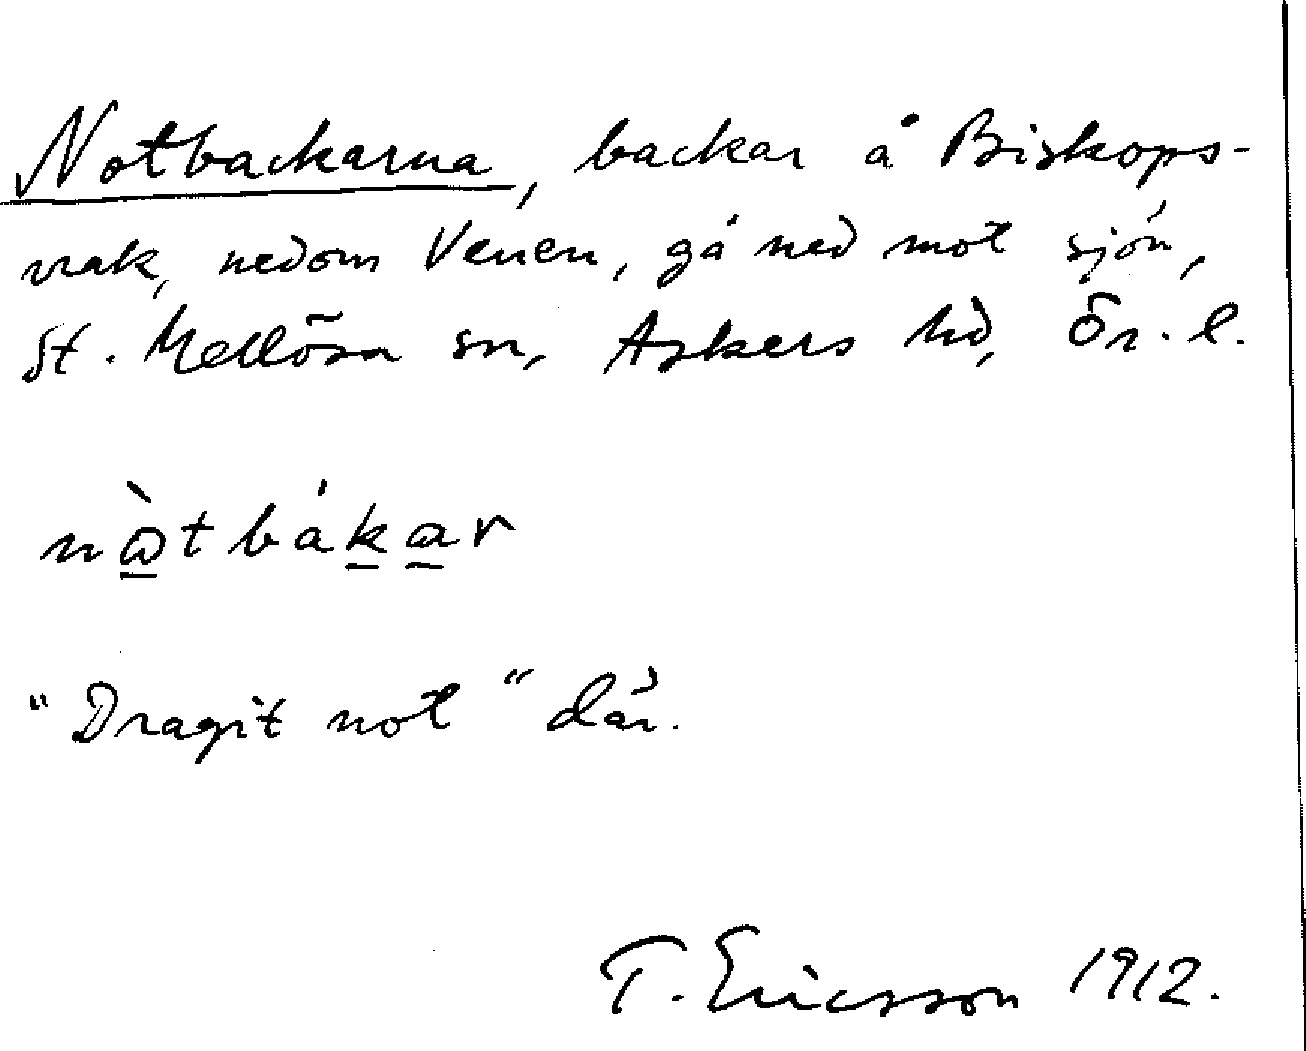 Notbackarna, backar å Biskops-
vrak, nedom Venen, gå ned mot sjön,
St. Mellösa sn, Askers hd, Ör. l.
nòtbákar
"Dragit not" där.
T. Ericsson 1912.